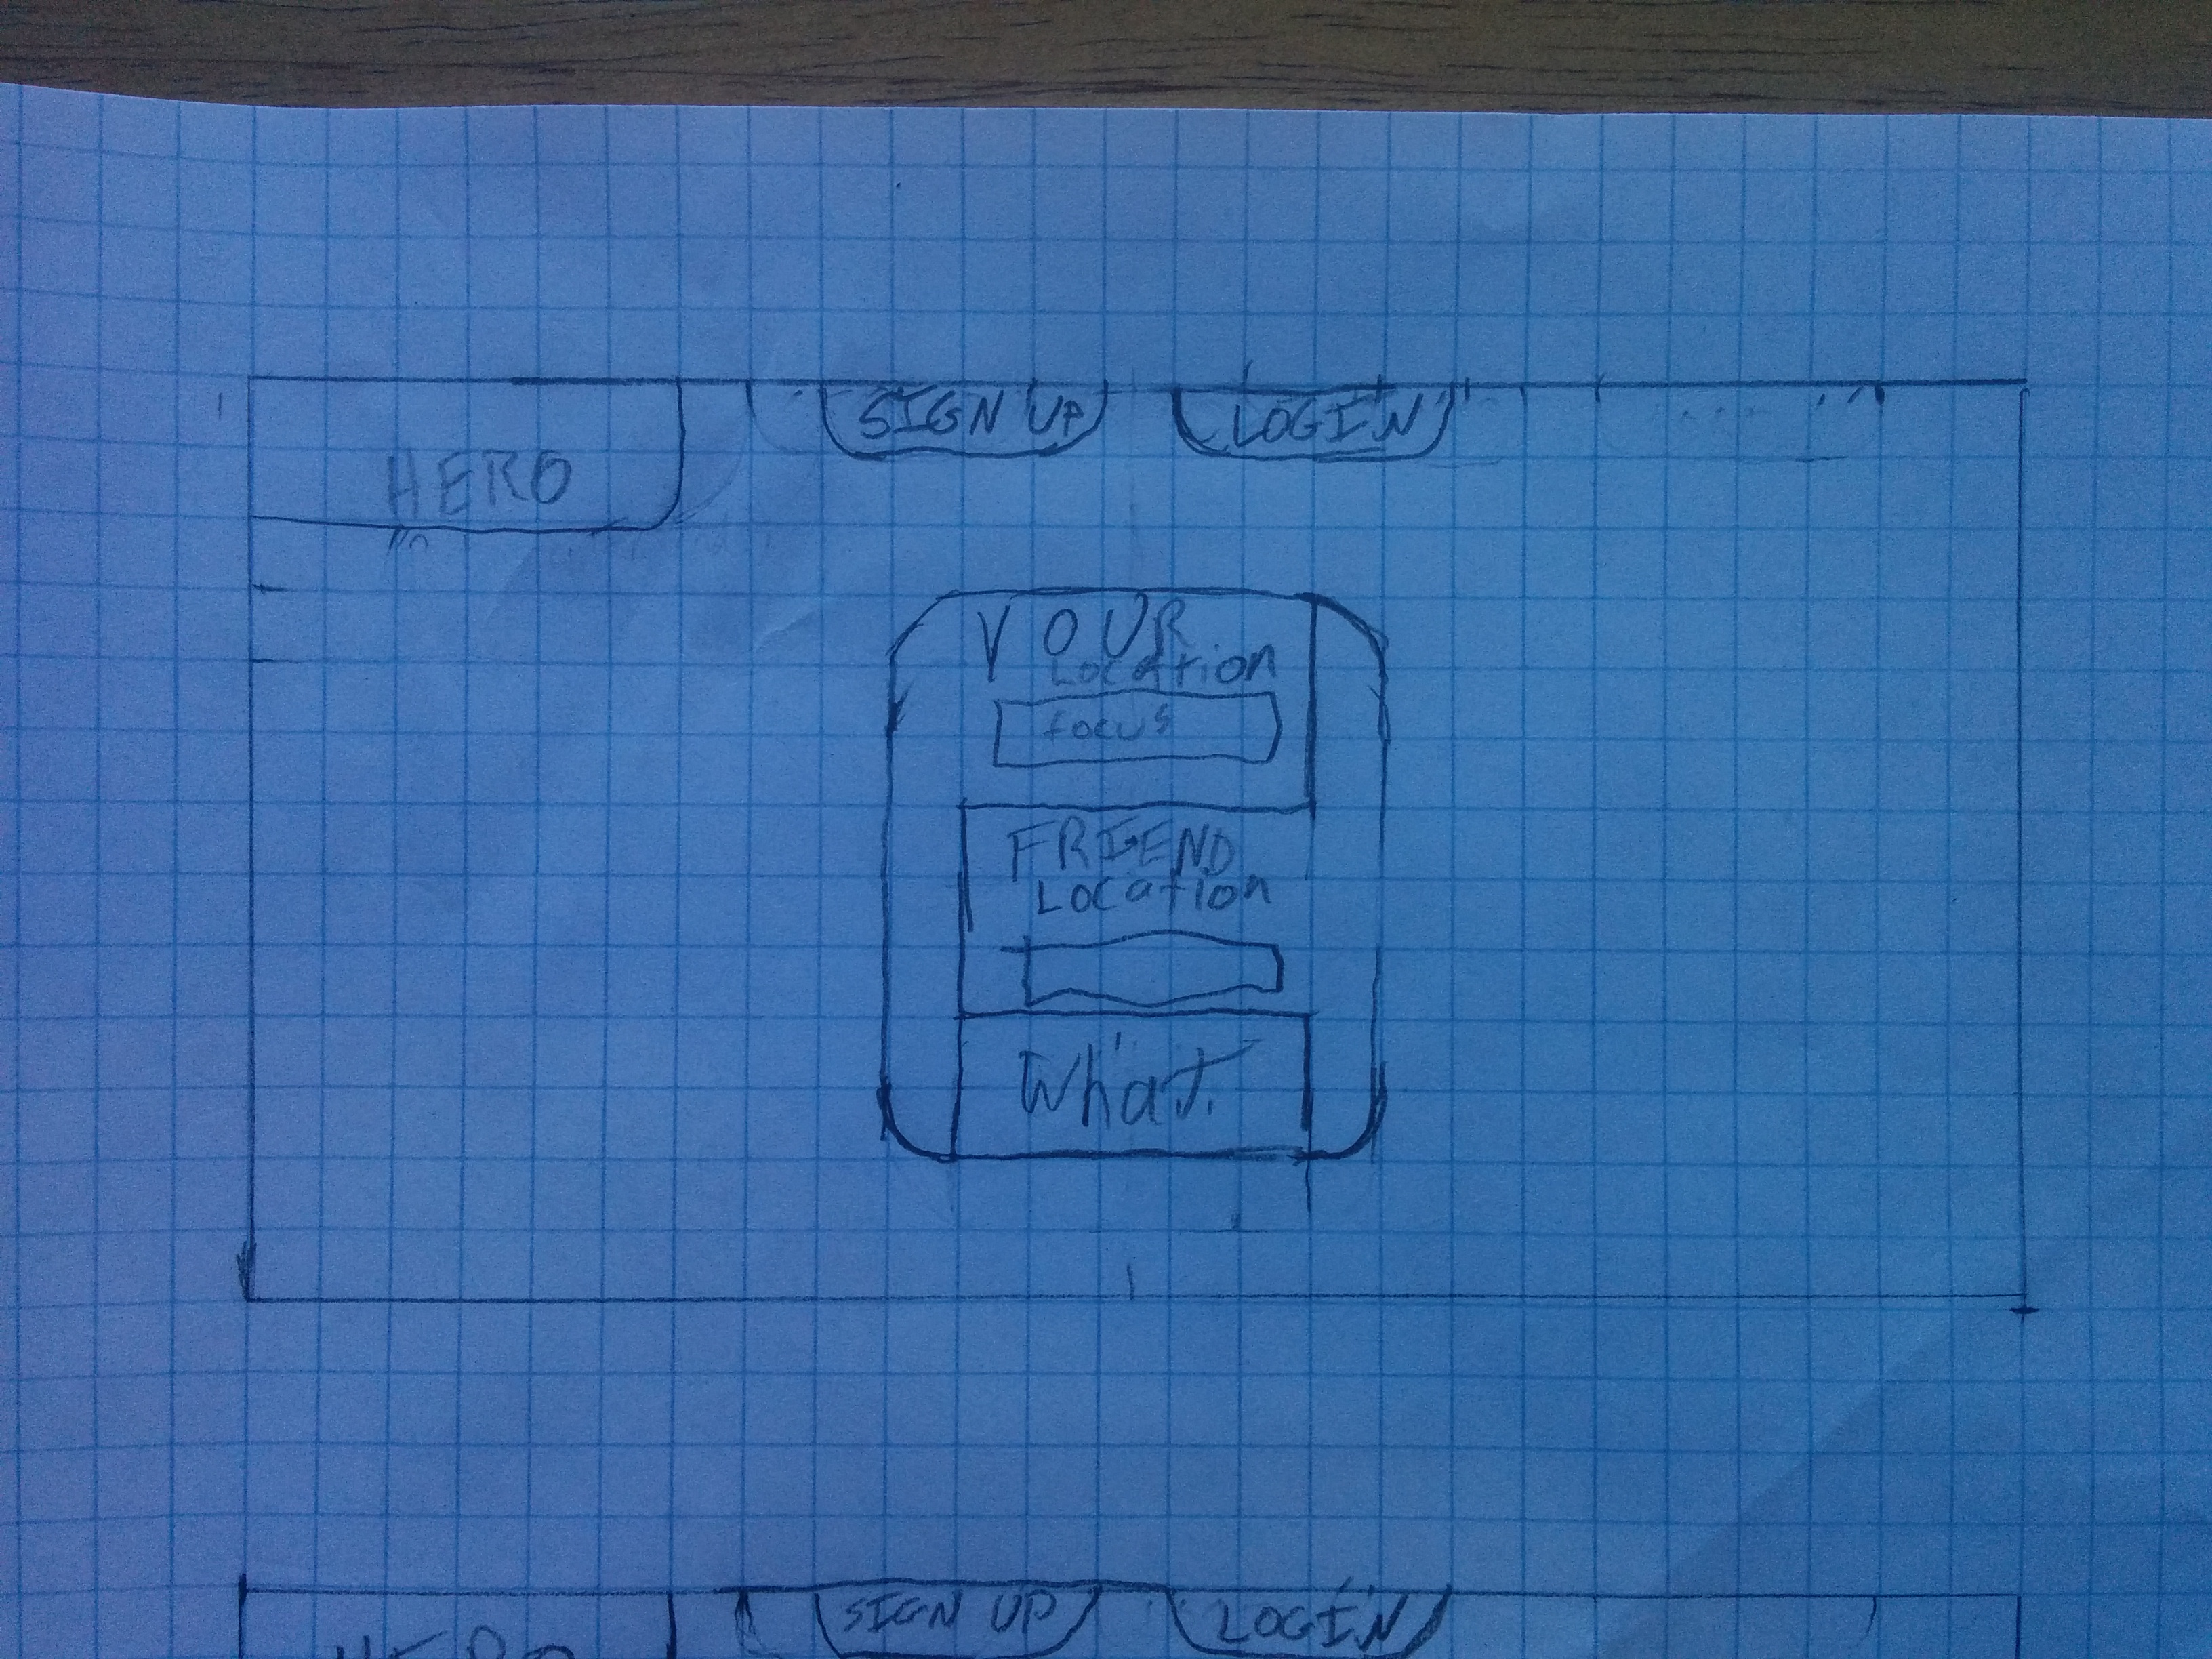 SIGN UP
LOGIN
HERO
YOUR
Location
focus
FRIEND
Location
What.
SIGN UP
LOGIN
HERO